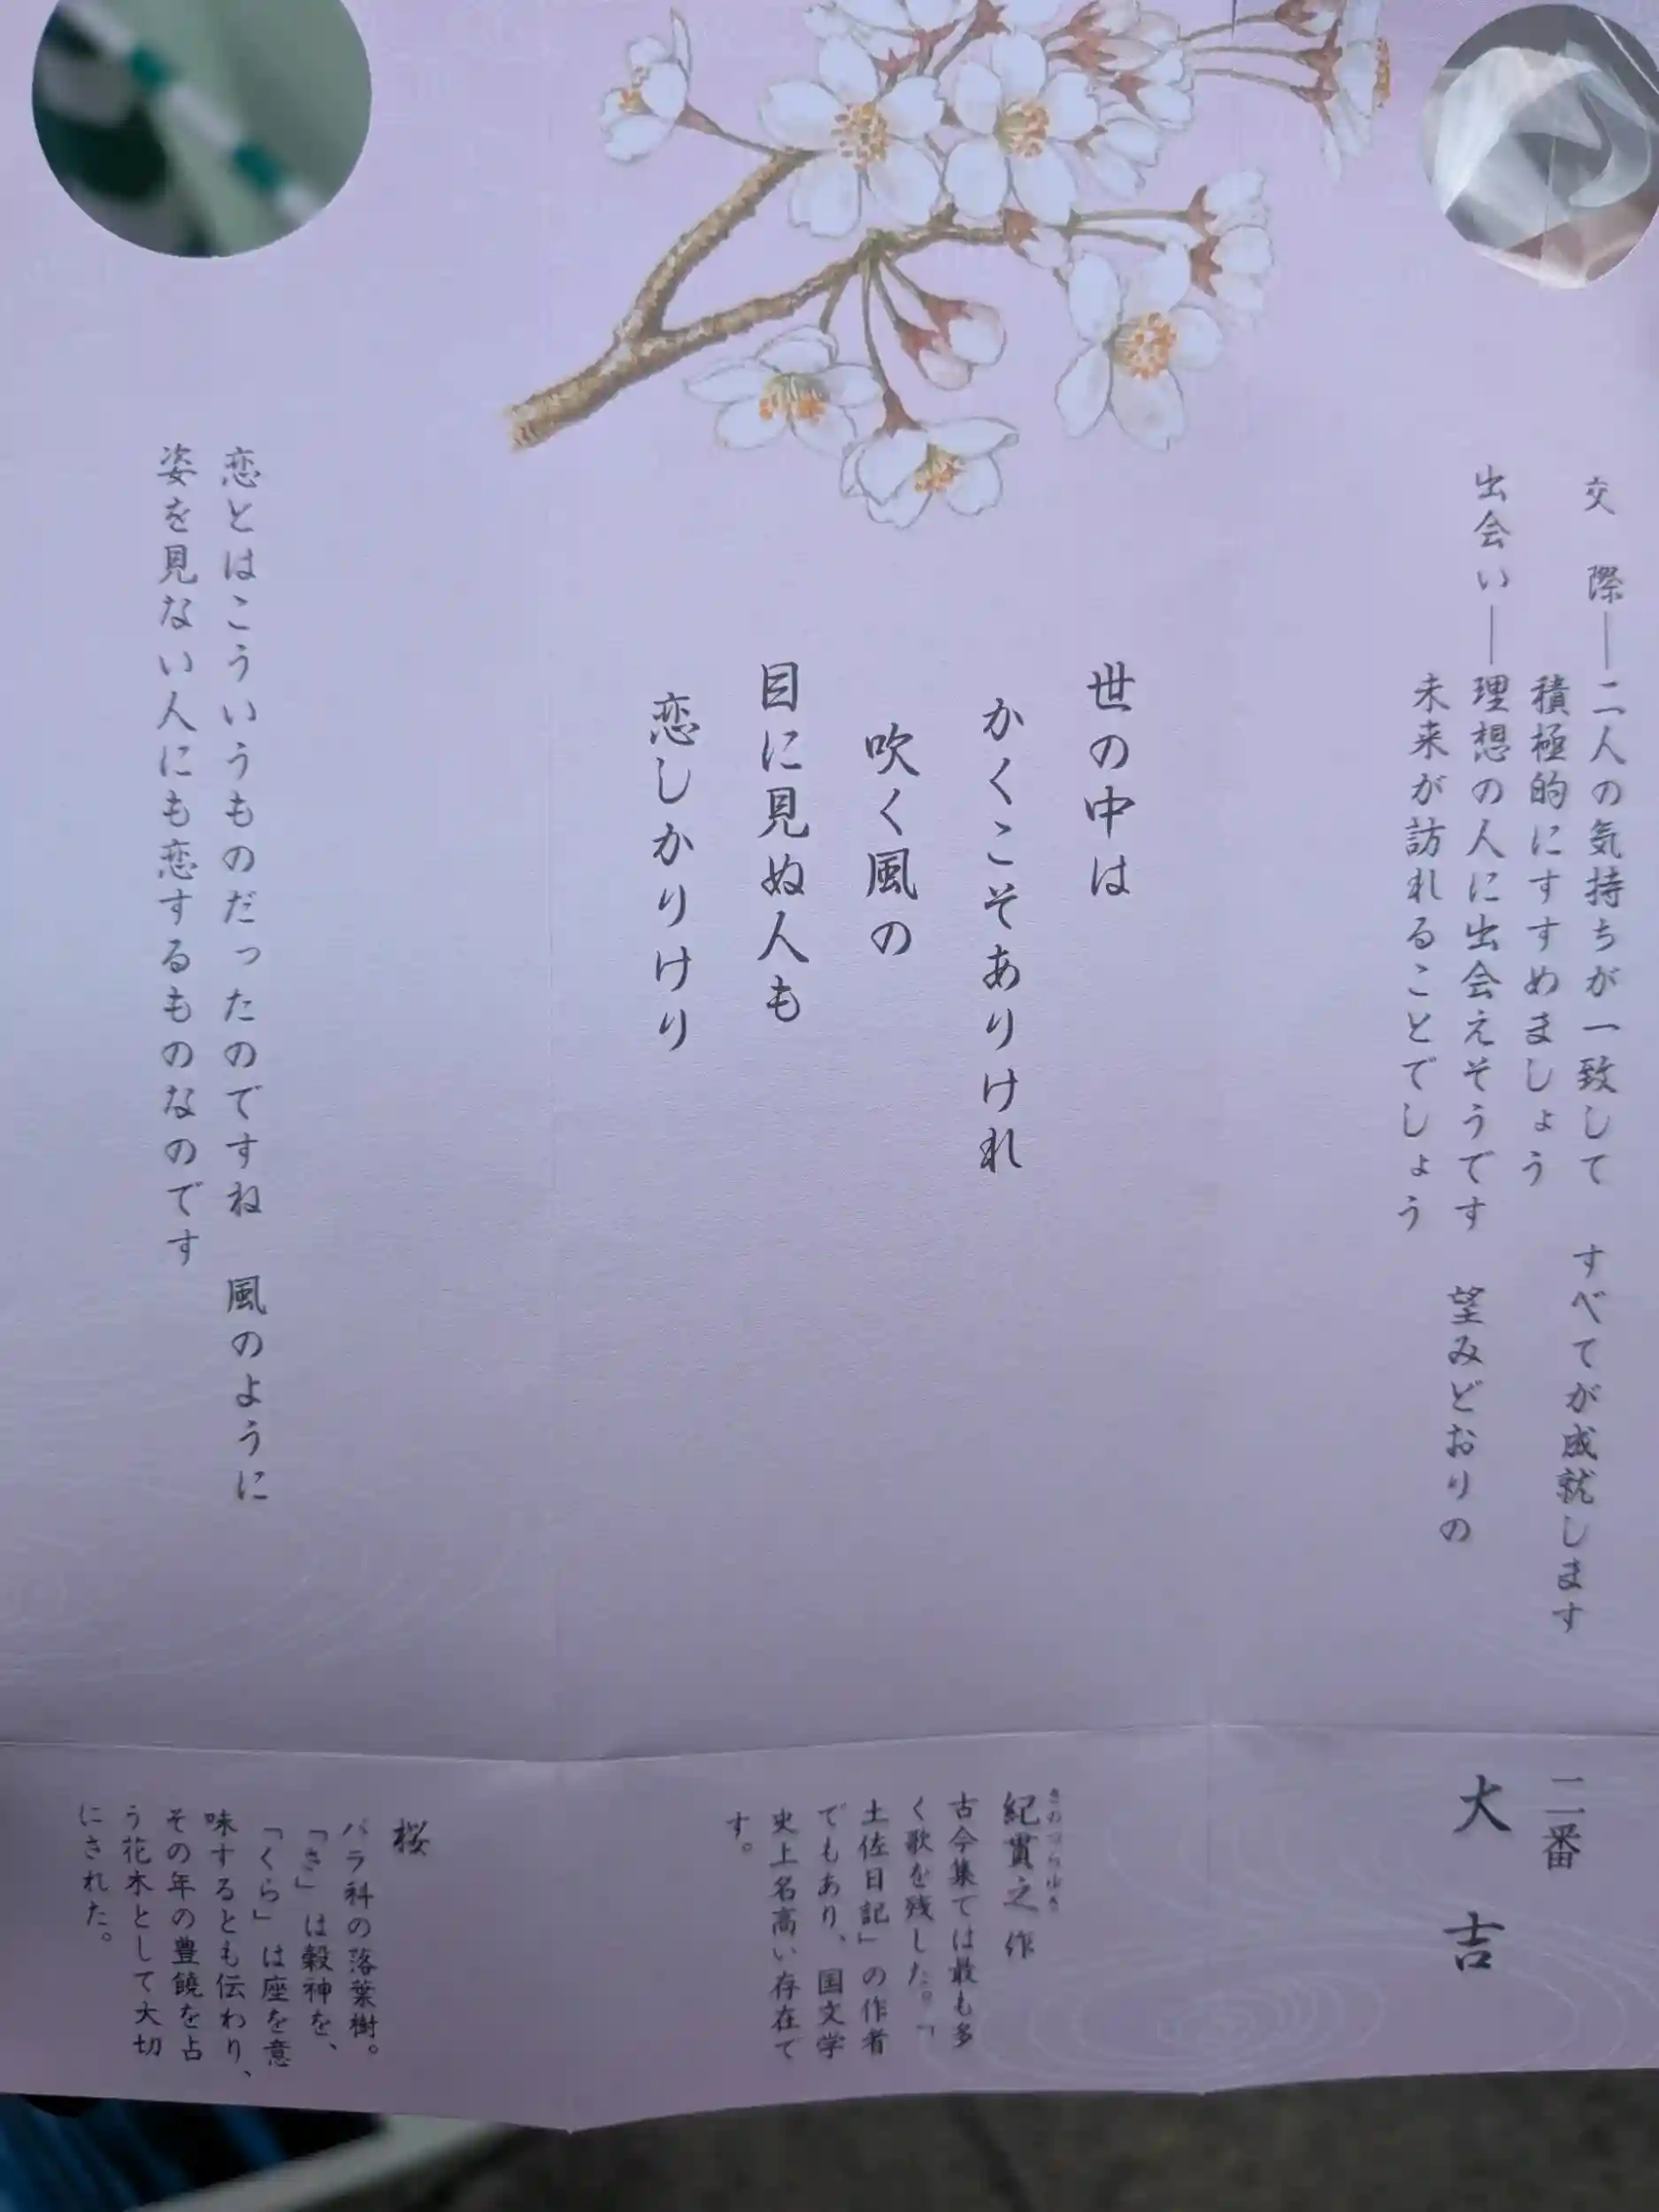 交 際―二人の気持ちが一致して すべてが成就します
積極的にすすめましょう
出会い―理想の人に出会えそうです 望みどおりの
未来が訪れることでしょう
世の中は
かくこそありけれ
吹く風の
目に見ぬ人も
恋しかりけり
恋とはこういうものだったのですね 風のように
姿を見ない人にも恋するものなのです
二番
大 吉
きのつらゆき
紀貫之 作
古今集では最も多
く歌を残した。「
土佐日記」の作者
でもあり、国文学
史上名高い存在で
す。
桜
バラ科の落葉樹。
「さ」は穀神を、
「くら」は座を意
味するとも伝わり、
その年の豊饒を占
う花木として大切
にされた。